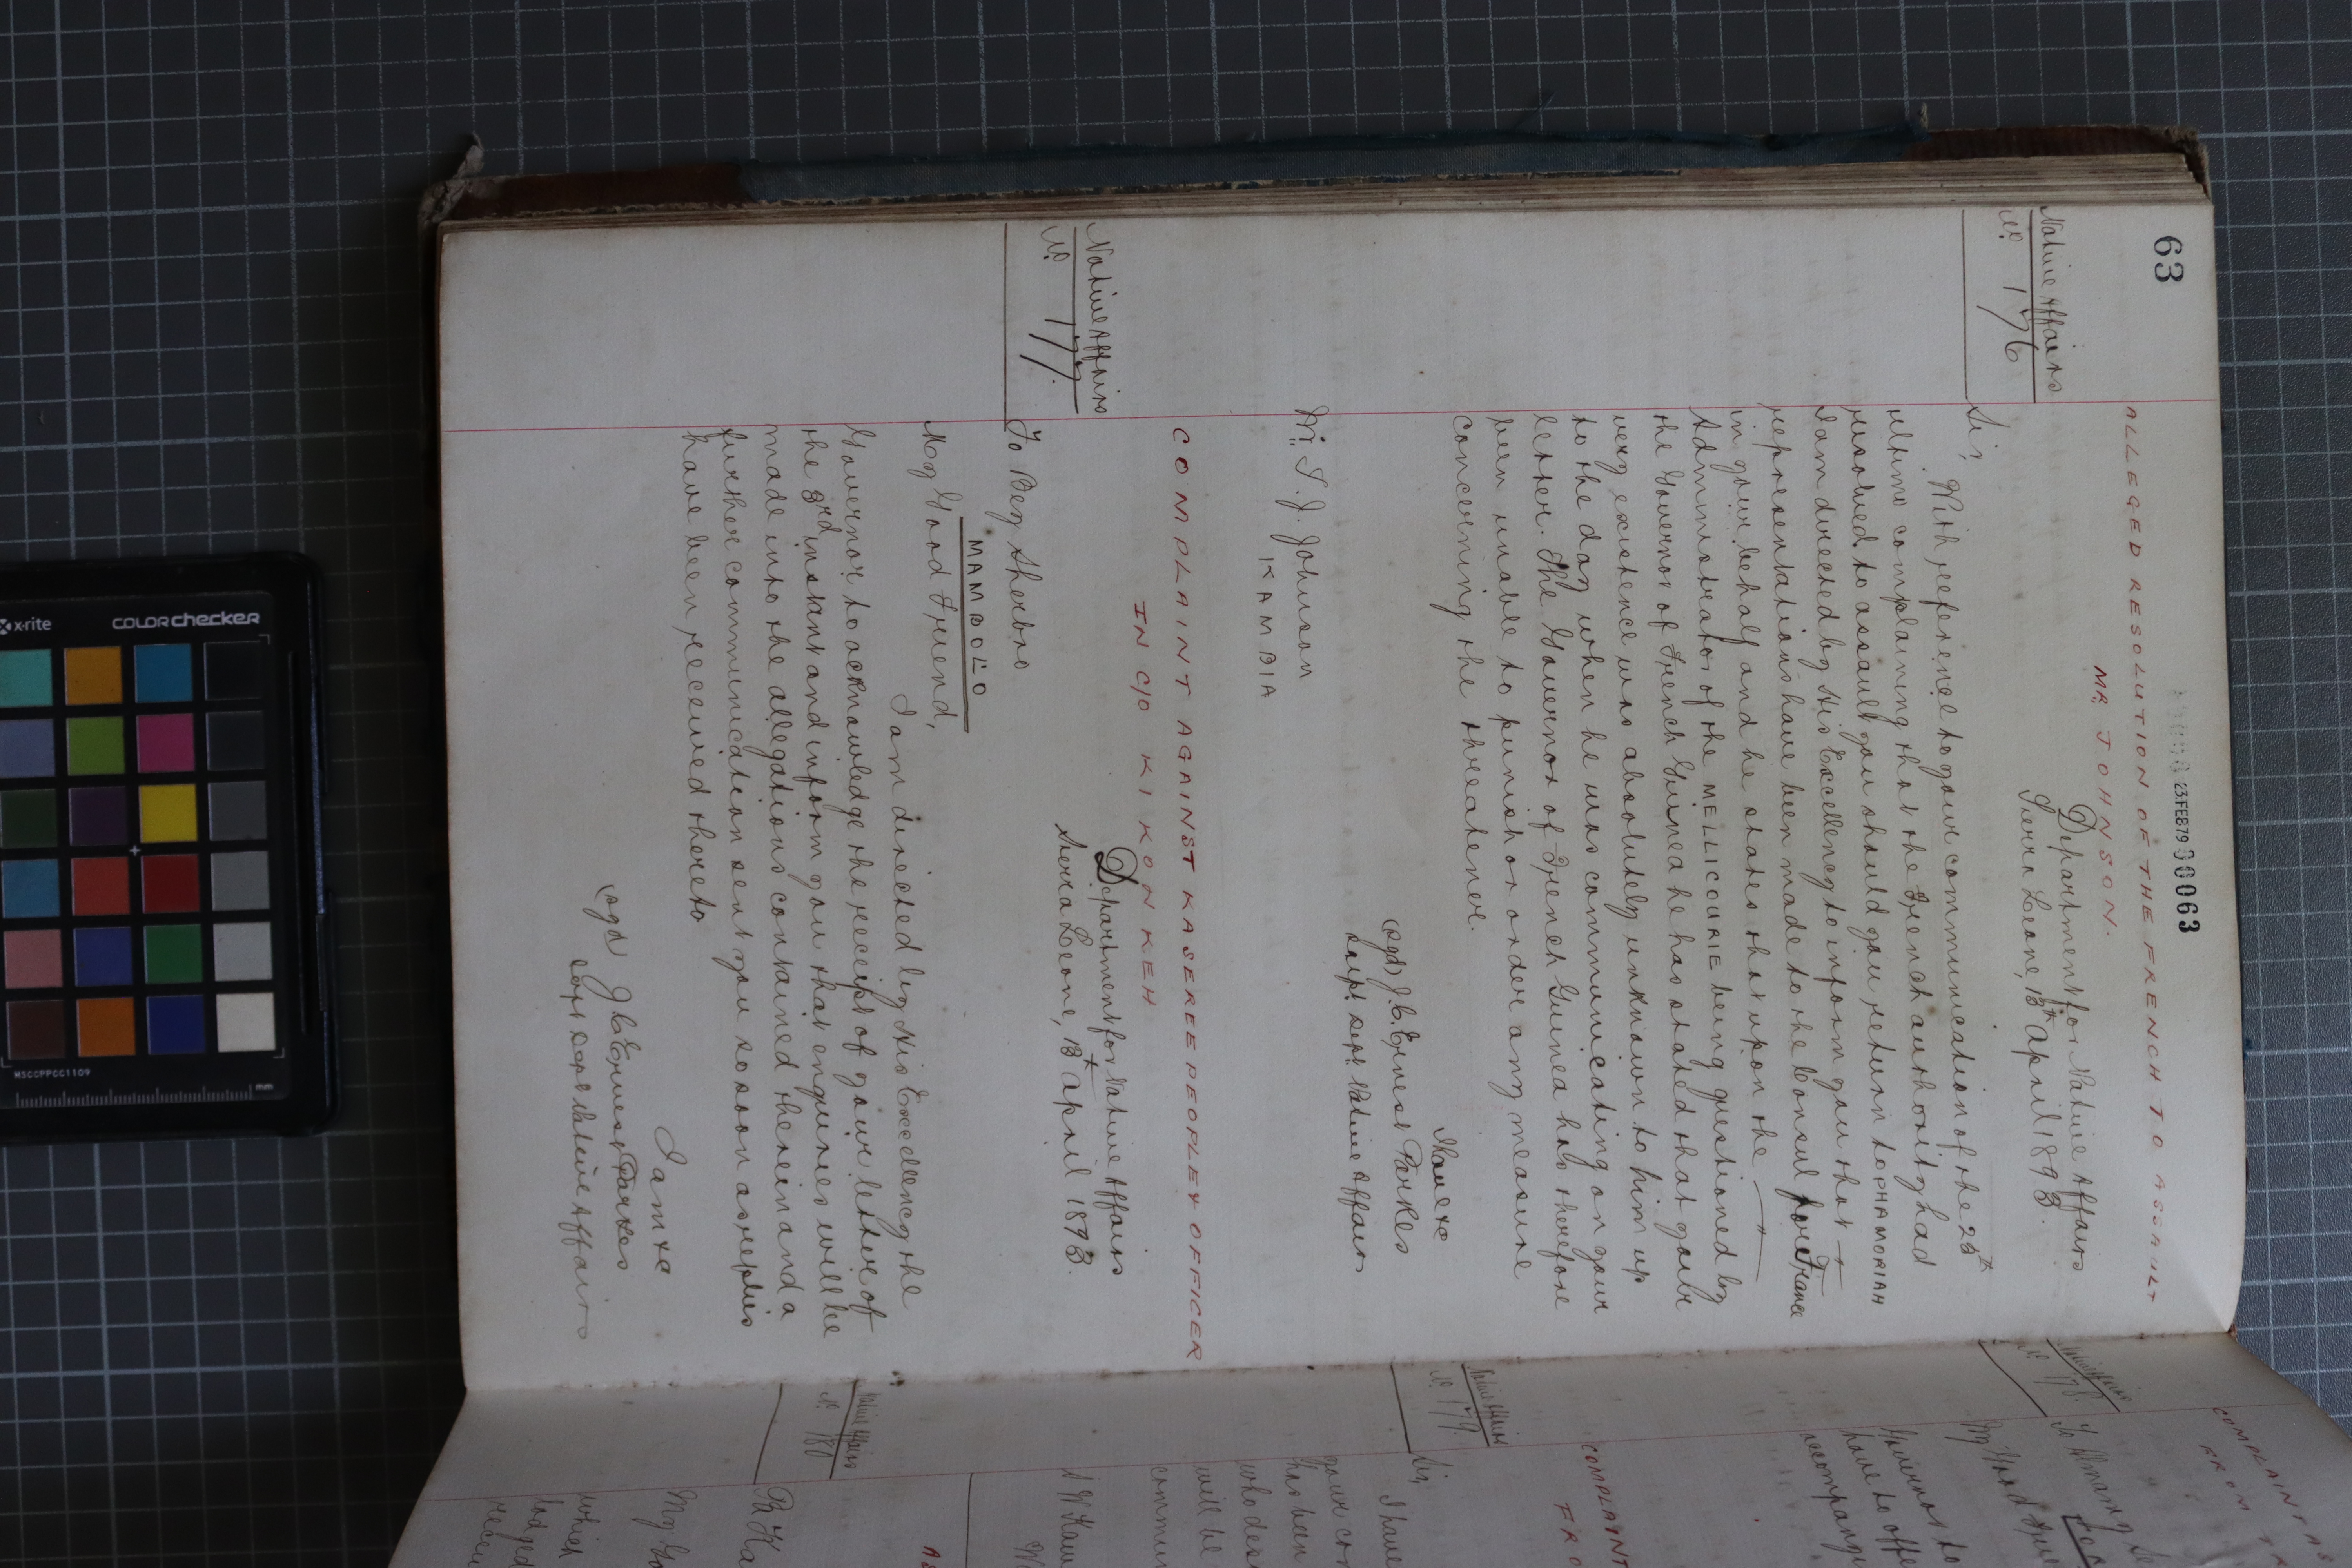 63
23FEB79 00063
ALLEGED RESOLUTION OF THE FRENCH TO ASSAULT
MR. JOHNSON.
Native Affairs
No. 176
Department for Native Affairs
Sierra Leone, 13th April 1893.
Sir,
With reference to your communication of the 25th
ultimo complaining that the French authority had
resolved to assault you should you return to PHAMORIAH
I am directed by His Excellency to inform you that
representations have been made to the Consul for France
in your behalf and he states that upon the
Administrator of the MELICOURIE being questioned by
the Governor of French Guinea he has stated that your
very existence was absolutely unknown to him up
to the day when he was communicating on your
letter. The Governor of French Guinea has therefore
been unable to punish or order any measure
concerning the threatener.
I have &c
(sgd) J. C. Ernest Parkes
Supt. Dept. Native Affairs
Mr. S. J. Johnson
KAMBIA
COMPLAINT AGAINST KASEREE PEOPLE & OFFICER
IN C/O KIKONKEH
Native Affairs
No. 177.
Department for Native Affairs
Sierra Leone, 13th April 1893.
To Bey Sherbro
MAMBOLO
My Good Friend,
I am directed by His Excellency the
Governor to acknowledge the receipt of your letter of
the 3rd instant and inform you that enquiries will be
made into the allegations contained therein and a
further communication sent you so soon as replies
have been received thereto
I am &c
(sgd J. C. Ernest Parkes
Supt Dept Native Affairs
COMPLAINT A
FROM T
Native Affairs
No. 178.
To Almamy
My Good Frie
Governor to
have to offe
accompany
COMPLAINT
FRO
Native Affairs
No. 179.
Sir,
I have
your con
has been
who des
will be
commun
Native Affairs
No. 180
My Go
which
lodged
receiv